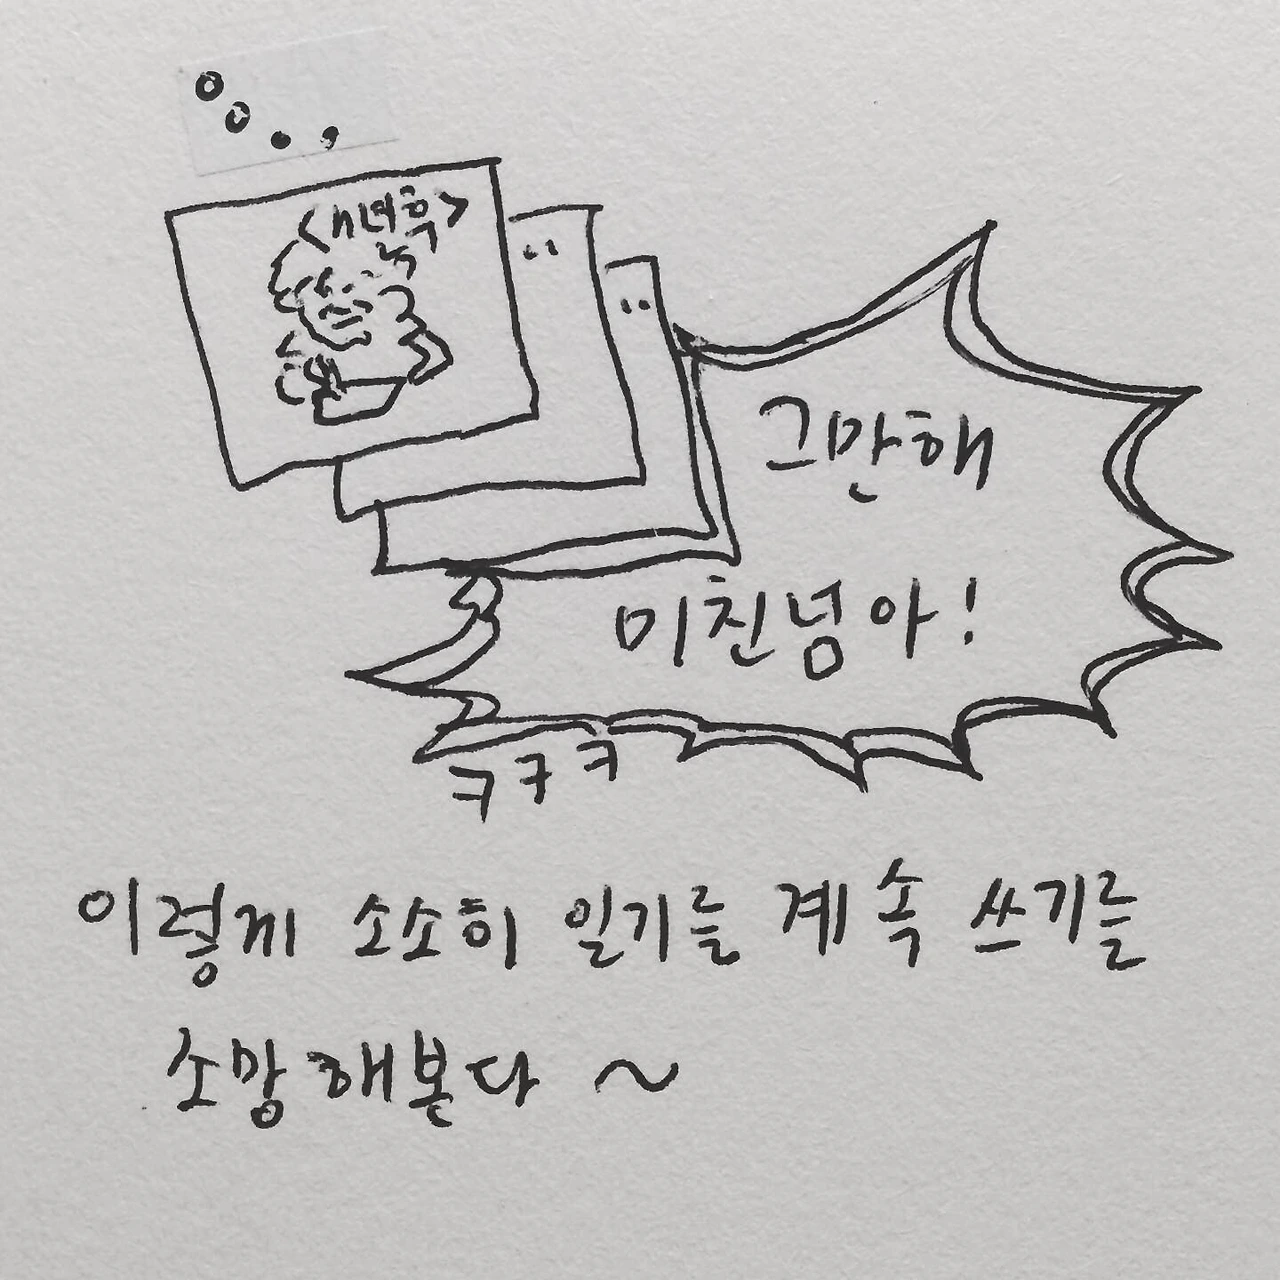 <n년후>
" "
" "
그만해
미친넘아!
ㅋㅋㅋ
이렇게 소소히 일기를 계속 쓰기를
소망해본다 ~